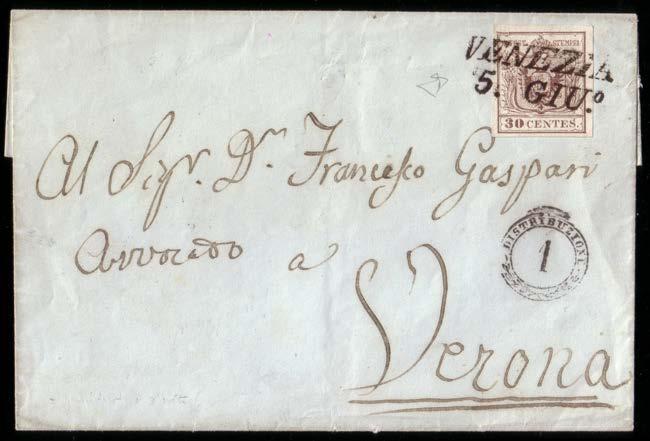 VENEZIA
5. GIU.º
30 CENTES.
Al Sigr. Dn. Francesco Gaspari
Avvocato a
Verona
DISTRIBUZIONE
1